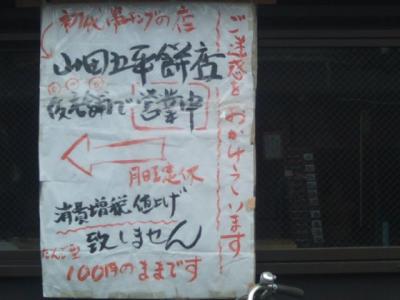 ご迷惑をおかけしています
初代 串モチの店
山田五平餅店
仮店舗で営業中
月曜定休
消費増税値上げ
致しません
だんご型
100円のままです